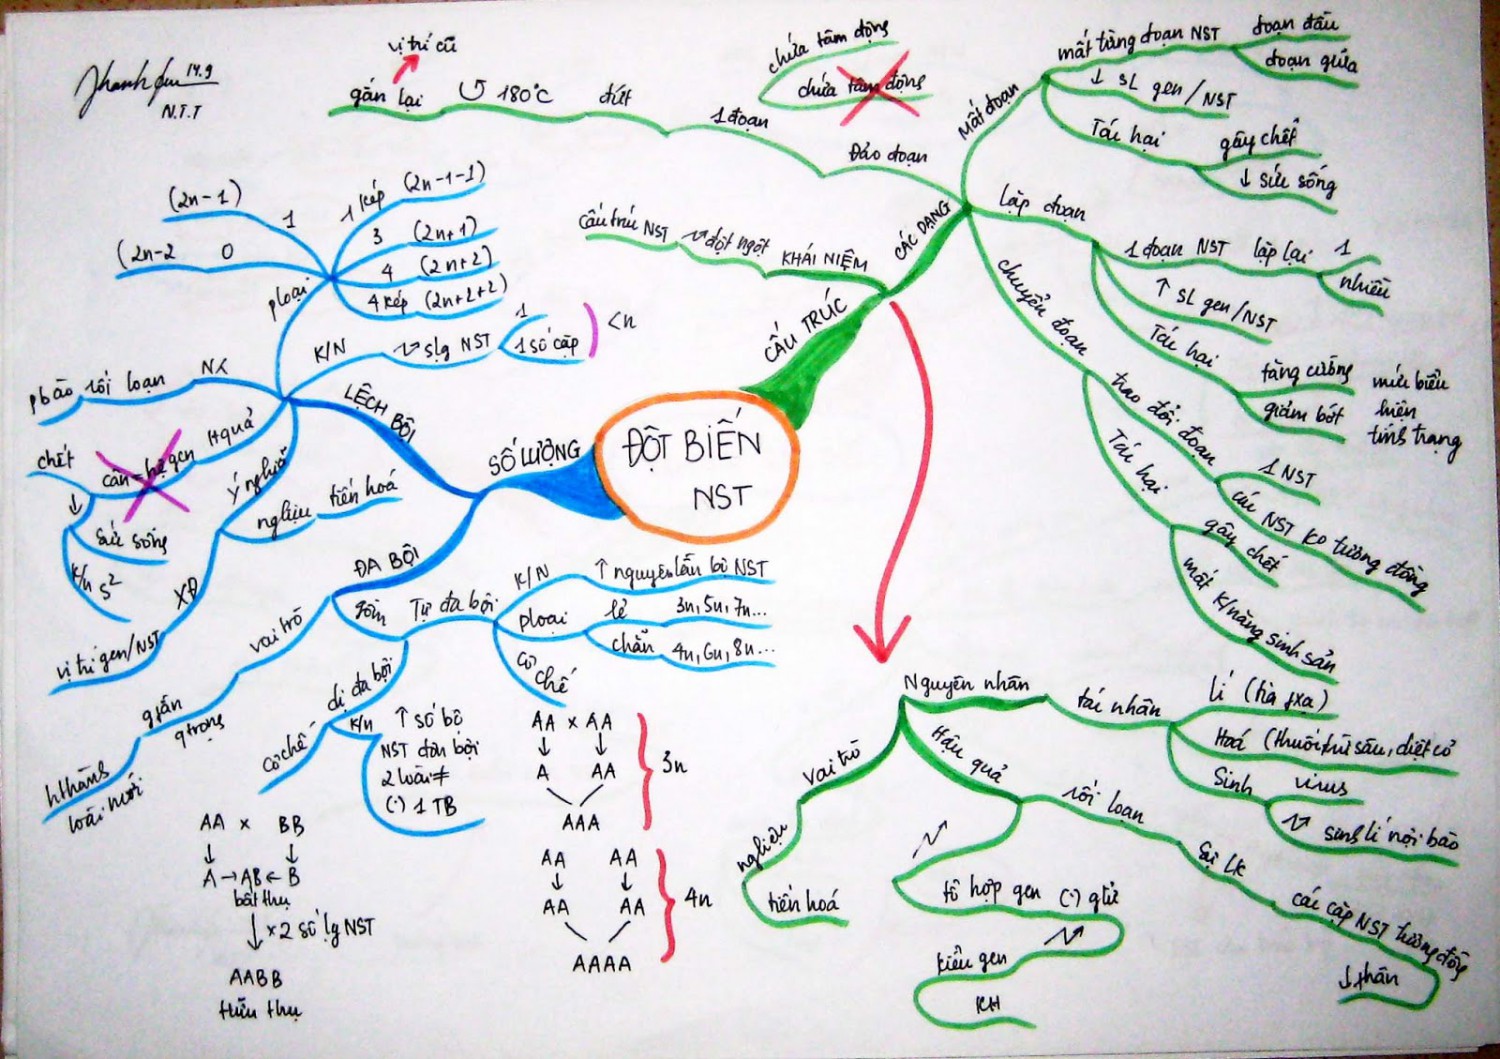 14.9
N.T.T
ĐỘT BIẾN
NST
CẤU TRÚC
KHÁI NIỆM
đột ngột
Cấu trúc NST
CÁC DẠNG
Mất đoạn
mất từng đoạn NST
đoạn đầu
đoạn giữa
↓ SL gen/NST
Tác hại
gây chết
↓ sức sống
Lặp đoạn
1 đoạn NST lặp lại
1
nhiều
↑ SL gen/NST
Tác hại
tăng cường
giảm bớt
mức biểu
hiện
tính trạng
chuyển đoạn
trao đổi đoạn
1 NST
các NST ko tương đồng
Tác hại
gây chết
mất k/năng sinh sản
Đảo đoạn
1 đoạn
chứa tâm động
chứa tâm động
đứt
180°C
gắn lại
vị trí cũ
Nguyên nhân
tác nhân
lí (tia fxạ)
Hoá (thuốc trừ sâu, diệt cỏ
Sinh
virus
sinh lí nội bào
Hậu quả
rối loạn
Sự LK
các cặp NST tương đồng
↓ phân
tổ hợp gen (·) gtử
kiểu gen
KH
Vai trò
nghiệu
tiến hoá
SỐ LƯỢNG
LỆCH BỘI
K/N
slg NST
1
1 số cặp
<n
ploại
1
(2n-1)
0
(2n-2
1 kép (2n-1-1)
3 (2n+1)
4 (2n+2)
4 kép (2n+2+2)
NN
pbào rối loạn
Hquả
cân = hệ gen
chết
↓
sức sống
k/n s²
ý nghiã
nghiịu tiến hoá
XĐ
vị trí gen/NST
ĐA BỘI
gồm
Tự đa bội
K/N
↑ nguyên lần bộ NST
ploại
lẻ
3n, 5n, 7n...
chẵn
4n, 6n, 8n...
Cơ
chế
AA x AA
↓ ↓
A AA
AAA
3n
AA AA
↓ ↓
AA AA
AAAA
4n
dị đa bội
k/n
↑ số bộ
NST đơn bội
2 loài ≠
(·) 1 TB
Cơ chế
AA x BB
↓ ↓
A → AB ← B
bất thụ
↓ x2 số lg NST
AABB
hữu thụ
vai trò
qtrọng
hthành
loài mới